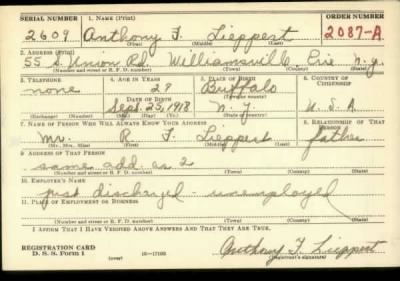 SERIAL NUMBER 1. NAME (Print) ORDER NUMBER
2609 Anthony F. Lieppert 2087-A
(First) (Middle) (Last)
2. ADDRESS (Print)
55 S. Union Rd. Williamsville Erie N.Y.
(Number and street or R. F. D. number) (Town) (County) (State)
3. TELEPHONE 4. AGE IN YEARS 5. PLACE OF BIRTH 6. COUNTRY OF CITIZENSHIP
none 27 Buffalo
DATE OF BIRTH (Town or county)
Sept. 25, 1918 N.Y. U.S.A.
(Exchange) (Number) (Mo.) (Day) (Yr.) (State or country)
7. NAME OF PERSON WHO WILL ALWAYS KNOW YOUR ADDRESS 8. RELATIONSHIP OF THAT PERSON
Mr. R. F. Lieppert father
(Mr., Mrs., Miss) (First) (Middle) (Last)
9. ADDRESS OF THAT PERSON
same add. as 2
(Number and street or R. F. D. number) (Town) (County) (State)
10. EMPLOYER'S NAME
just discharged - unemployed
11. PLACE OF EMPLOYMENT OR BUSINESS
(Number and street or R. F. D. number) (Town) (County) (State)
I AFFIRM THAT I HAVE VERIFIED ABOVE ANSWERS AND THAT THEY ARE TRUE.
REGISTRATION CARD
D. S. S. Form 1 (over) Anthony F. Lieppert
(Registrant's signature)